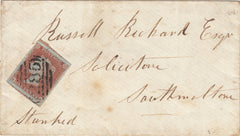 Russell Richard Esqr
Solicitor
Southmolton
Stamped